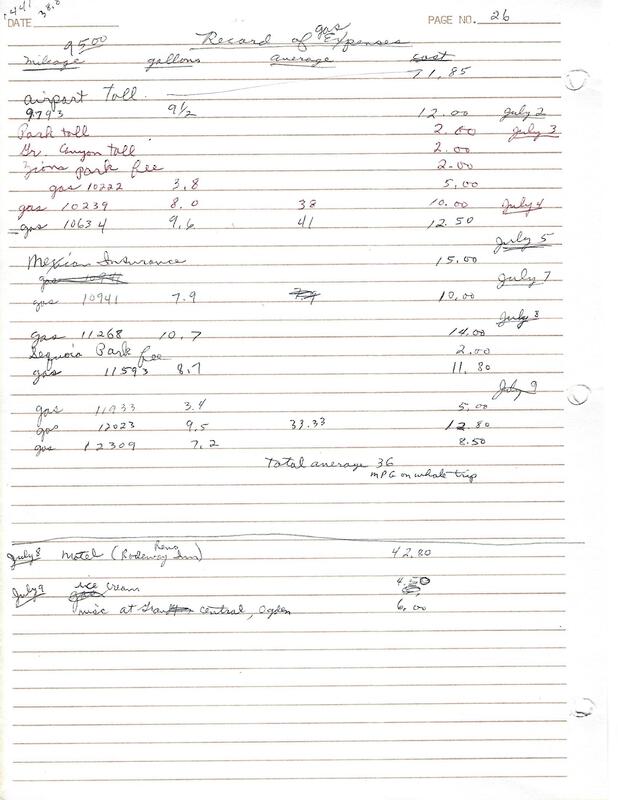 .441 38.8
DATE PAGE NO. 26
9500 Record of gas Expenses
mileage gallons average cost
71.85
airport toll
9793 9½ 12.00 July 2
Park toll 2.00 July 3
Gr. Canyon toll 2.00
Zions park fee 2.00
gas 10222 3.8 5.00
gas 10239 8.0 38 10.00 July 4
gas 10634 9.6 41 12.50
July 5
Mexican Insurance 15.00
gas 10941 July 7
gas 10941 7.9 10.00
July 8
gas 11268 10.7 14.00
Sequoia Park fee 2.00
gas 11593 8.7 11.80
July 9
gas 11933 3.4 5.00
gas 12023 9.5 33.33 12.80
gas 12309 7.2 8.50
Total average 36
MPG on whole trip
July 8 Motel (Rodeway Reno Inn) 42.80
July 9 ice cream
misc at central, Ogden 6.00